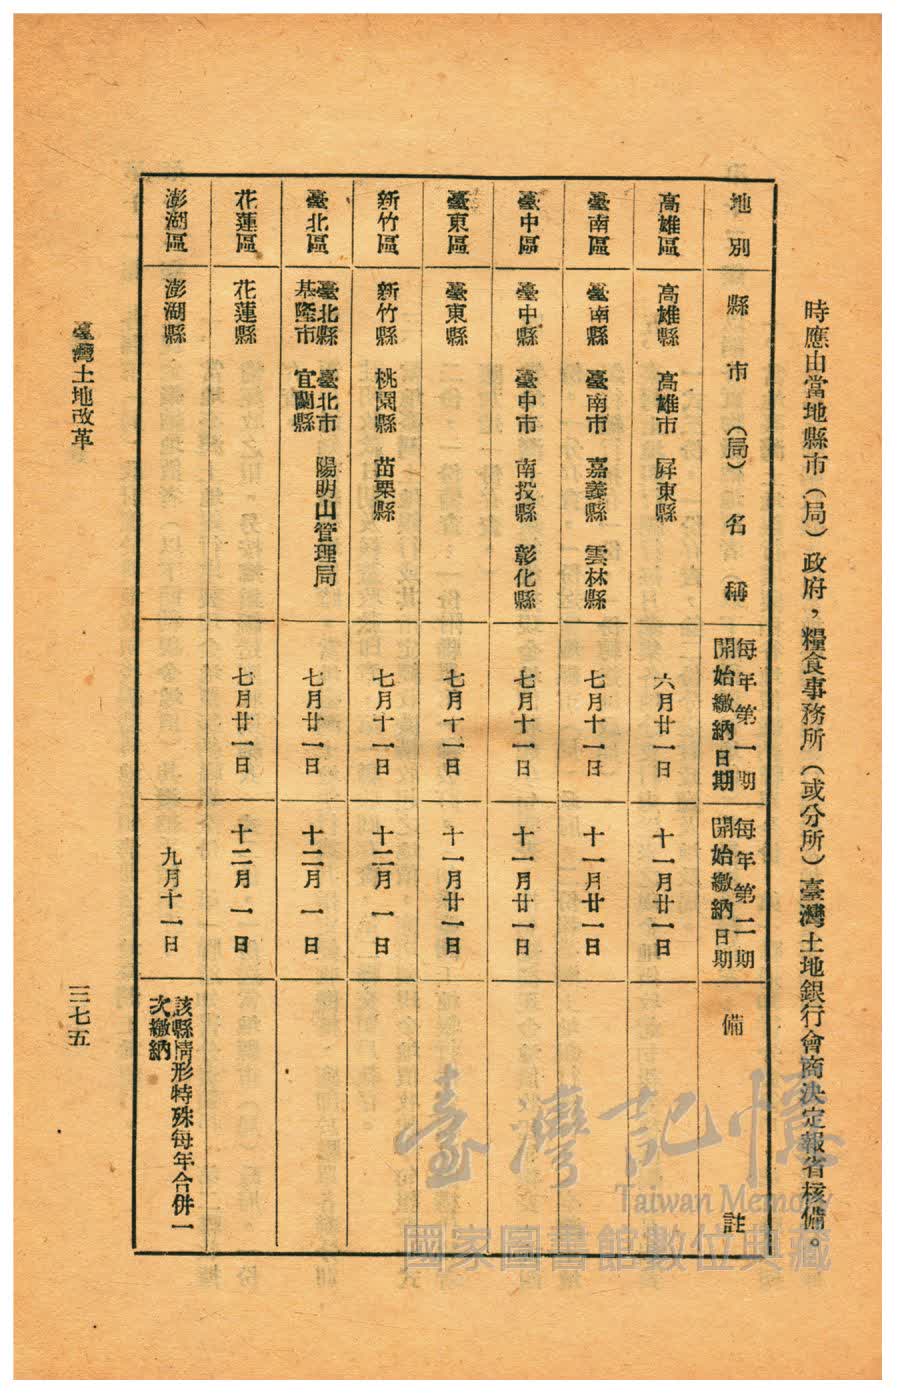 時應由當地縣市（局）政府，糧食事務所（或分所）臺灣土地銀行會商決定報省核備。
地別　縣市（局）名稱　每年第一期開始繳納日期　每年第二期開始繳納日期　備註
高雄區　高雄縣　高雄市　屏東縣　六月廿一日　十一月廿一日
臺南區　臺南縣　臺南市　嘉義縣　雲林縣　七月十一日　十一月廿一日
臺中區　臺中縣　臺中市　南投縣　彰化縣　七月十一日　十一月廿一日
臺東區　臺東縣　七月十一日　十一月廿一日
新竹區　新竹縣　桃園縣　苗栗縣　七月十一日　十二月一日
臺北區　臺北縣　臺北市　陽明山管理局　基隆市　宜蘭縣　七月廿一日　十二月一日
花蓮區　花蓮縣　七月廿一日　十二月一日
澎湖區　澎湖縣　九月十一日　該縣情形特殊每年合併一次繳納
臺灣土地改革
三七五
臺灣記憶
Taiwan Memory
國家圖書館數位典藏